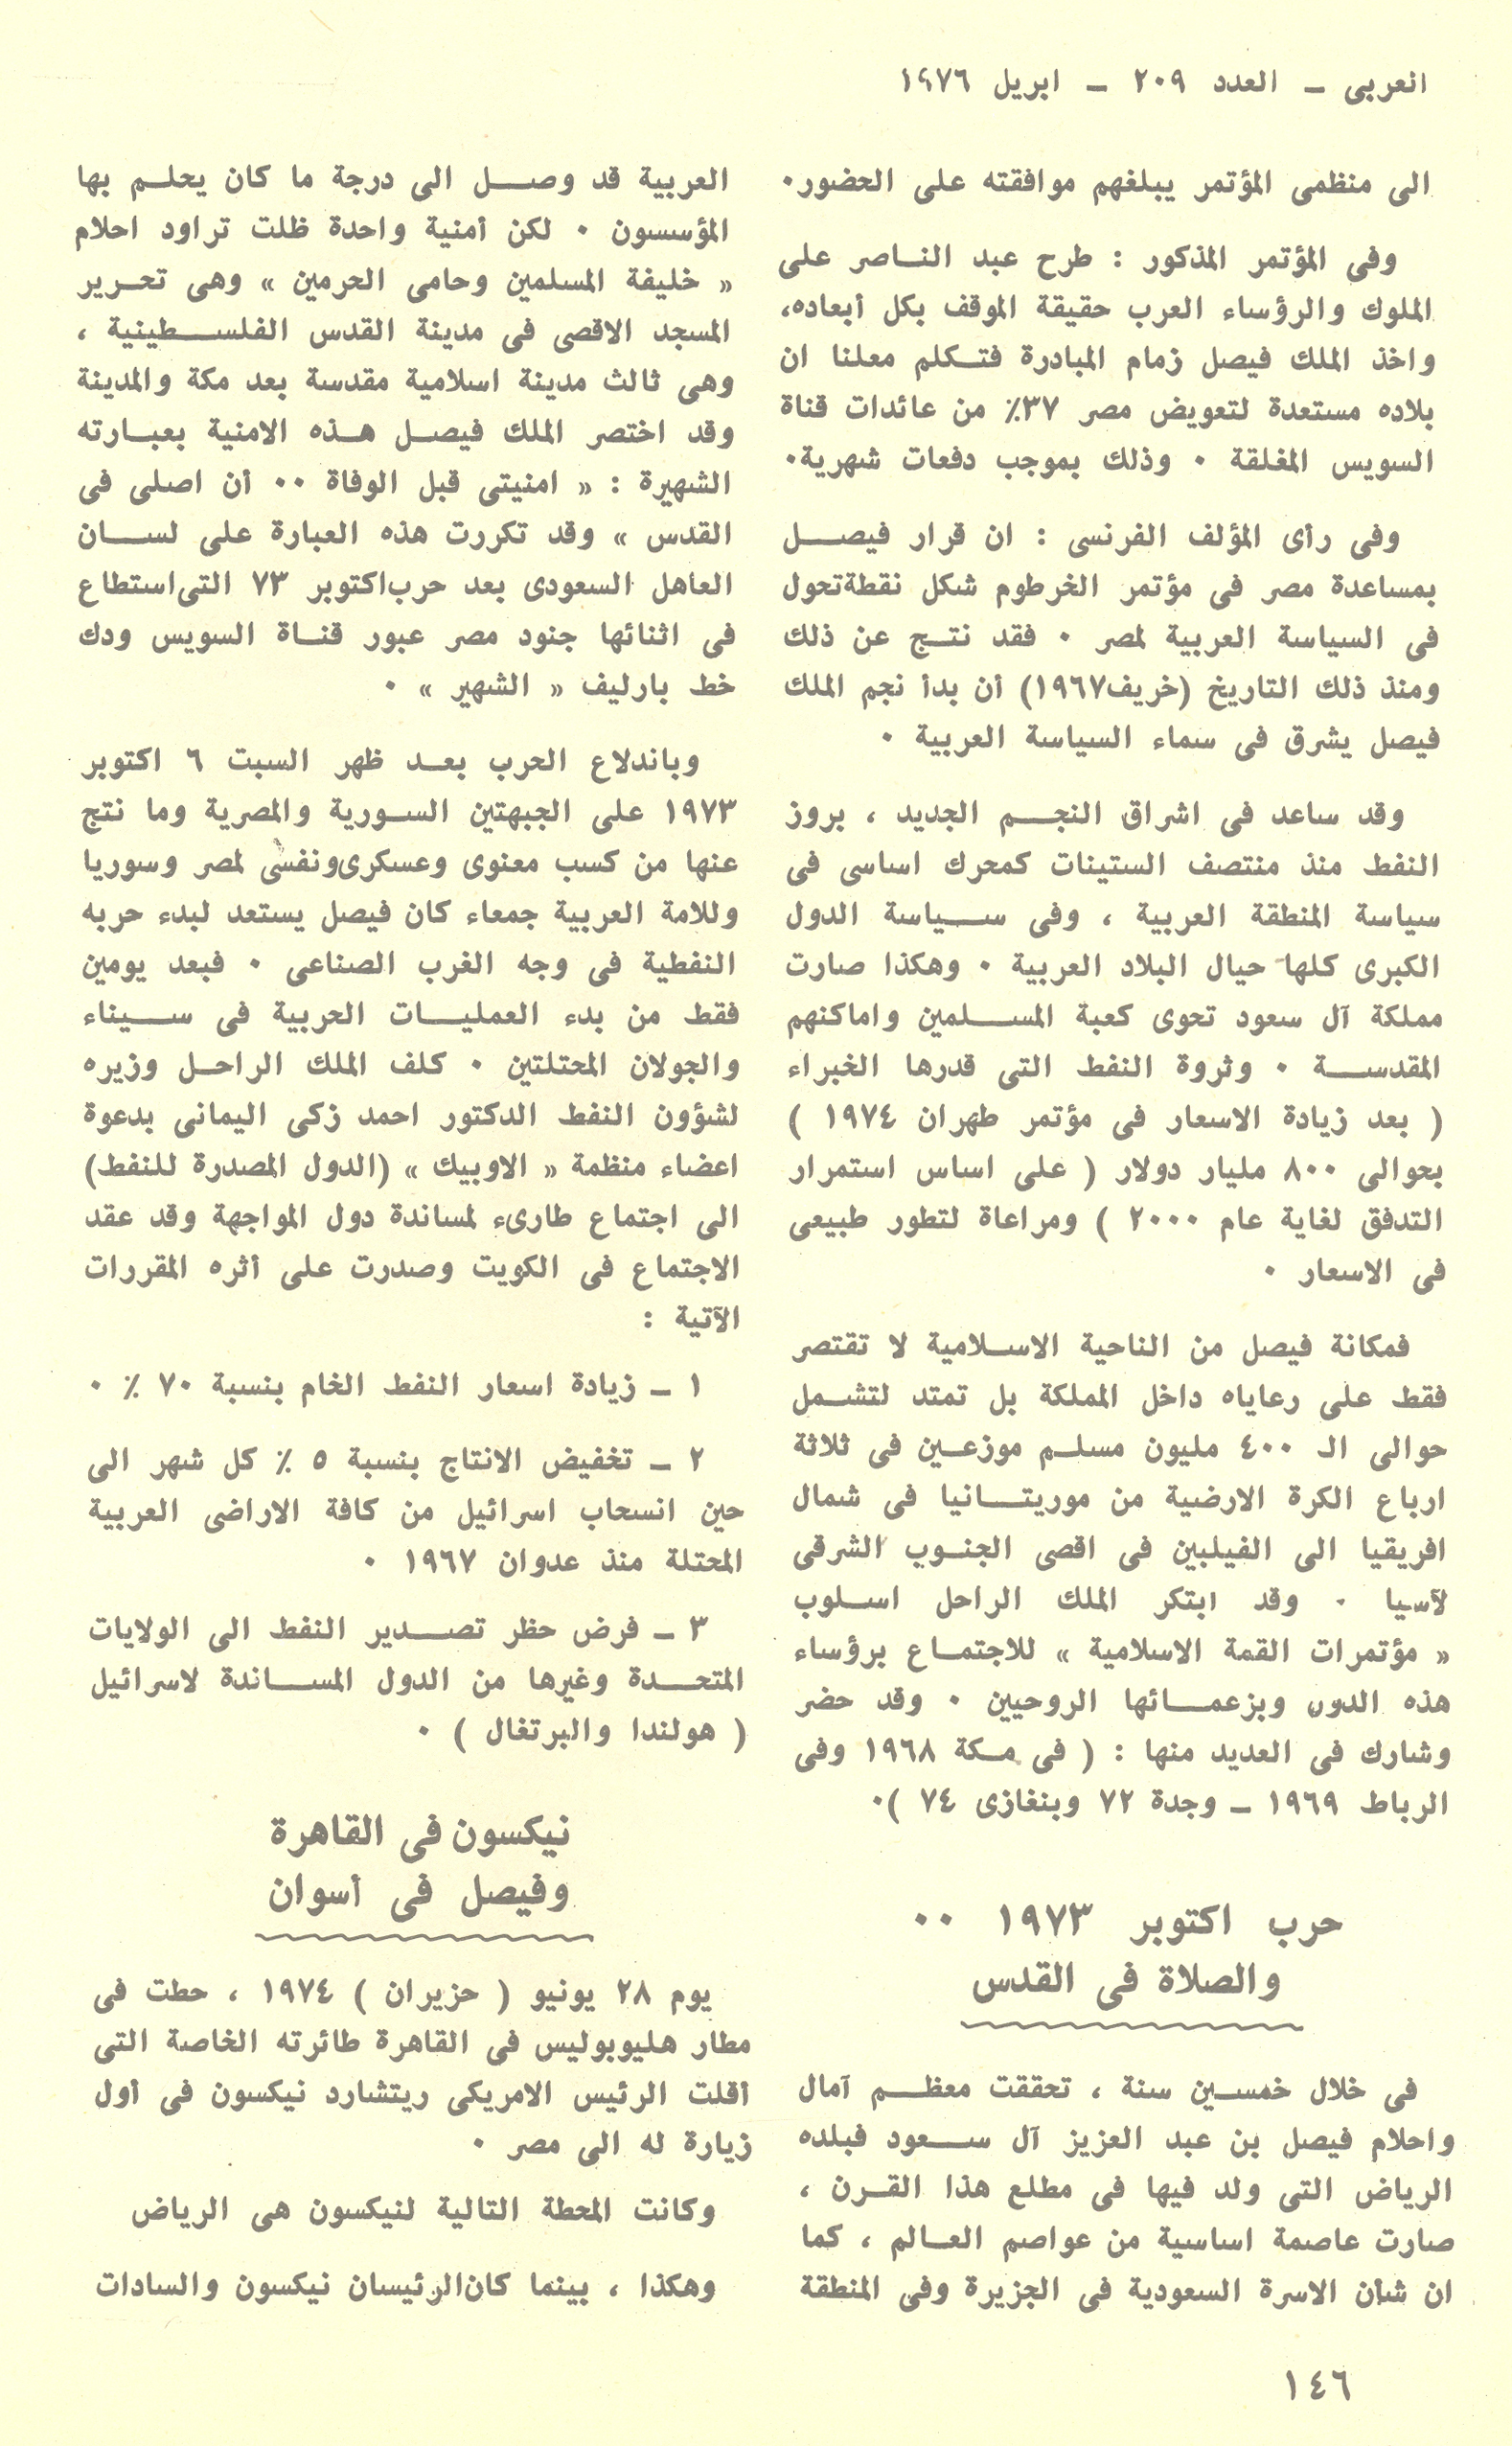 العربى ـ العدد ٢٠٩ ـ ابريل ١٩٧٦
الى منظمى المؤتمر يبلغهم موافقته على الحضور٠
وفى المؤتمر المذكور : طرح عبد الناصر على
الملوك والرؤساء العرب حقيقة الموقف بكل أبعاده،
واخذ الملك فيصل زمام المبادرة فتكلم معلنا ان
بلاده مستعدة لتعويض مصر ٣٧٪ من عائدات قناة
السويس المغلقة ٠ وذلك بموجب دفعات شهرية٠
وفى رأى المؤلف الفرنسى : ان قرار فيصل
بمساعدة مصر فى مؤتمر الخرطوم شكل نقطة تحول
فى السياسة العربية لمصر ٠ فقد نتج عن ذلك
ومنذ ذلك التاريخ (خريف١٩٦٧) أن بدأ نجم الملك
فيصل يشرق فى سماء السياسة العربية ٠
وقد ساعد فى اشراق النجم الجديد ، بروز
النفط منذ منتصف الستينات كمحرك اساسى فى
سياسة المنطقة العربية ، وفى سياسة الدول
الكبرى كلها حيال البلاد العربية ٠ وهكذا صارت
مملكة آل سعود تحوى كعبة المسلمين واماكنهم
المقدسة ٠ وثروة النفط التى قدرها الخبراء
( بعد زيادة الاسعار فى مؤتمر طهران ١٩٧٤ )
بحوالى ٨٠٠ مليار دولار ( على اساس استمرار
التدفق لغاية عام ٢٠٠٠ ) ومراعاة لتطور طبيعى
فى الاسعار ٠
فمكانة فيصل من الناحية الاسلامية لا تقتصر
فقط على رعاياه داخل المملكة بل تمتد لتشمل
حوالى الـ ٤٠٠ مليون مسلم موزعين فى ثلاثة
ارباع الكرة الارضية من موريتانيا فى شمال
افريقيا الى الفيلبين فى اقصى الجنوب الشرقى
لآسيا ٠ وقد ابتكر الملك الراحل اسلوب
« مؤتمرات القمة الاسلامية » للاجتماع برؤساء
هذه الدول وبزعمائها الروحيين ٠ وقد حضر
وشارك فى العديد منها : ( فى مكة ١٩٦٨ وفى
الرباط ١٩٦٩ ـ وجدة ٧٢ وبنغازى ٧٤ )٠
حرب اكتوبر ١٩٧٣ ٠٠
والصلاة فى القدس
فى خلال خمسين سنة ، تحققت معظم آمال
واحلام فيصل بن عبد العزيز آل سعود فبلده
الرياض التى ولد فيها فى مطلع هذا القرن ،
صارت عاصمة اساسية من عواصم العالم ، كما
ان شأن الاسرة السعودية فى الجزيرة وفى المنطقة
العربية قد وصل الى درجة ما كان يحلم بها
المؤسسون ٠ لكن أمنية واحدة ظلت تراود احلام
« خليفة المسلمين وحامى الحرمين » وهى تحرير
المسجد الاقصى فى مدينة القدس الفلسطينية ،
وهى ثالث مدينة اسلامية مقدسة بعد مكة والمدينة
وقد اختصر الملك فيصل هذه الامنية بعبارته
الشهيرة : « امنيتى قبل الوفاة ٠٠ أن اصلى فى
القدس » وقد تكررت هذه العبارة على لسان
العاهل السعودى بعد حرب اكتوبر ٧٣ التى استطاع
فى اثنائها جنود مصر عبور قناة السويس ودك
خط بارليف « الشهير » ٠
وباندلاع الحرب بعد ظهر السبت ٦ اكتوبر
١٩٧٣ على الجبهتين السورية والمصرية وما نتج
عنها من كسب معنوى وعسكرى ونفسى لمصر وسوريا
وللامة العربية جمعاء كان فيصل يستعد لبدء حربه
النفطية فى وجه الغرب الصناعى ٠ فبعد يومين
فقط من بدء العمليات الحربية فى سيناء
والجولان المحتلتين ٠ كلف الملك الراحل وزيره
لشؤون النفط الدكتور احمد زكى اليمانى بدعوة
اعضاء منظمة « الاوبيك » (الدول المصدرة للنفط)
الى اجتماع طارىء لمساندة دول المواجهة وقد عقد
الاجتماع فى الكويت وصدرت على أثره المقررات
الآتية :
١ ـ زيادة اسعار النفط الخام بنسبة ٧٠ ٪ ٠
٢ ـ تخفيض الانتاج بنسبة ٥ ٪ كل شهر الى
حين انسحاب اسرائيل من كافة الاراضى العربية
المحتلة منذ عدوان ١٩٦٧ ٠
٣ ـ فرض حظر تصدير النفط الى الولايات
المتحدة وغيرها من الدول المساندة لاسرائيل
( هولندا والبرتغال ) ٠
نيكسون فى القاهرة
وفيصل فى أسوان
يوم ٢٨ يونيو ( حزيران ) ١٩٧٤ ، حطت فى
مطار هليوبوليس فى القاهرة طائرته الخاصة التى
أقلت الرئيس الامريكى ريتشارد نيكسون فى أول
زيارة له الى مصر ٠
وكانت المحطة التالية لنيكسون هى الرياض
وهكذا ، بينما كان الرئيسان نيكسون والسادات
١٤٦